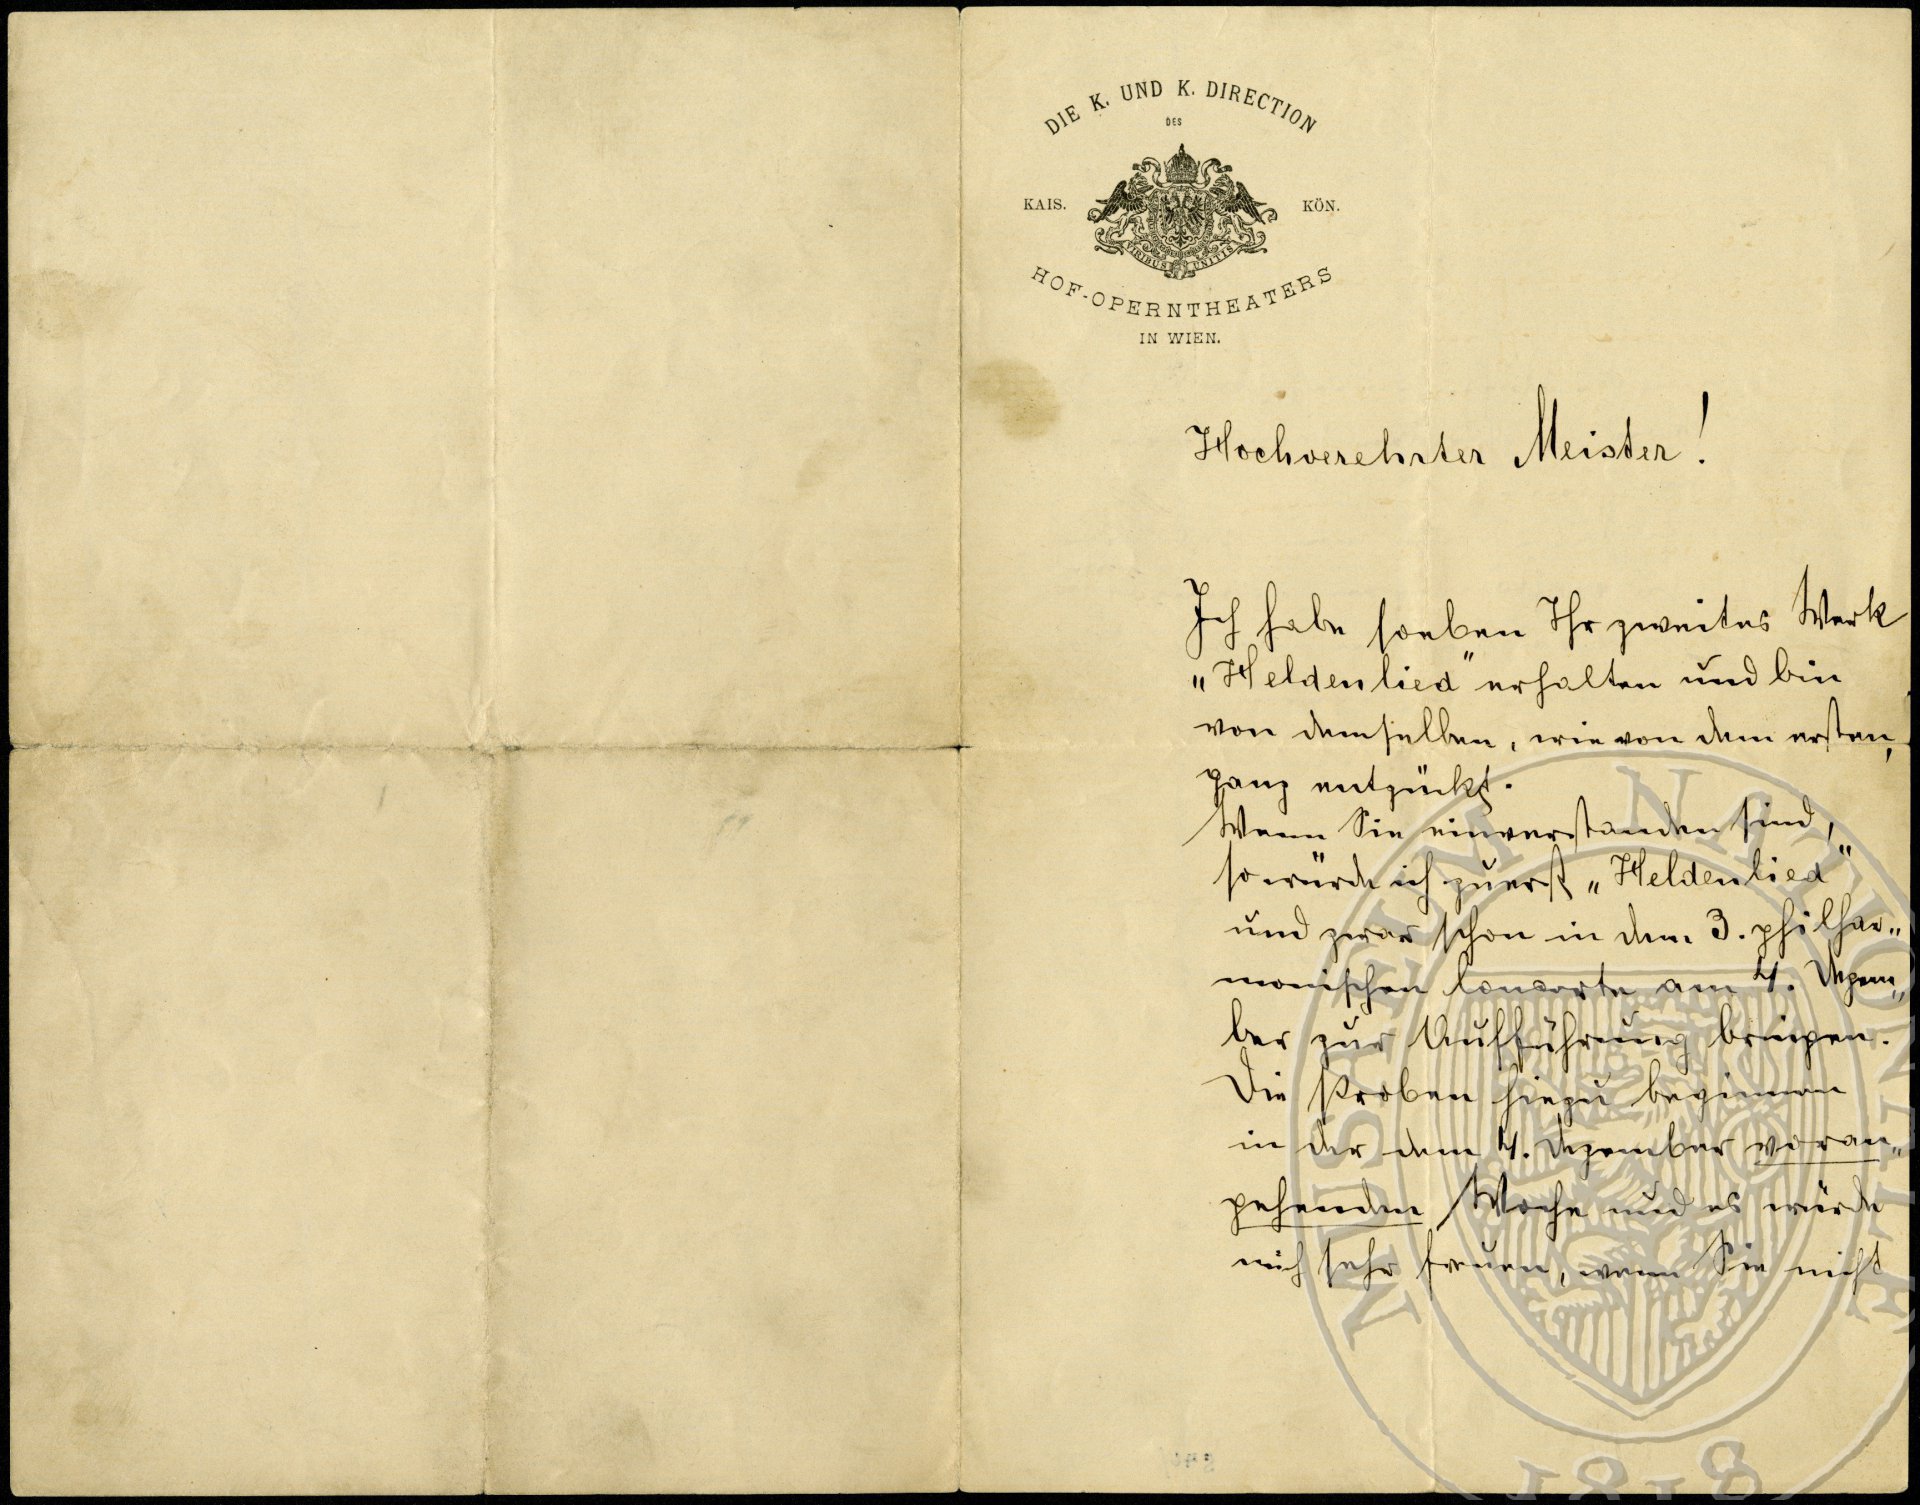 DIE K. UND K. DIRECTION
DES
KAIS. KÖN.
VIRIBUS UNITIS
HOF-OPERNTHEATERS
IN WIEN.
Hochverehrter Meister!
Ich habe soeben Ihr zweites Werk
„Heldenlied" erhalten und bin
von demselben, wie von dem ersten,
ganz entzückt.
Wenn Sie einverstanden sind,
so würde ich zuerst „Heldenlied"
und zwar schon in dem 3. philhar„
monischen Concerte am 4. Dezem„
ber zur Aufführung bringen.
Die Proben hiezu beginnen
in der dem 4. Dezember voran„
gehenden Woche und es würde
mich sehr freuen, wenn Sie nicht
MUSEUM NATIONALE
1818